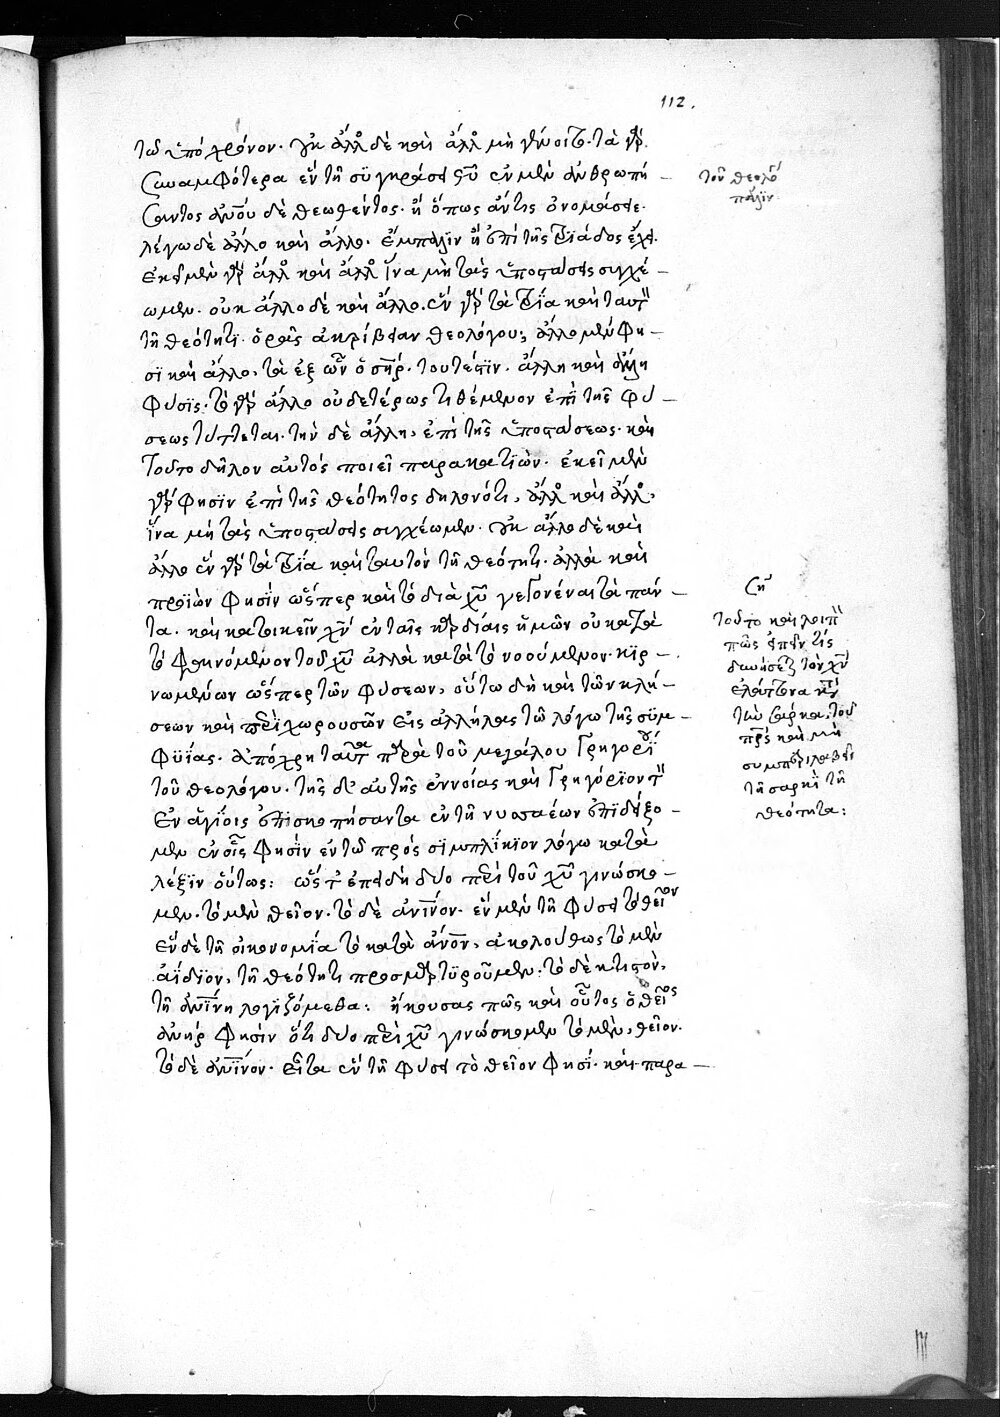 112.
τῶ ὑπὸ χρόνον. οὐκ ἄλλος δὲ καὶ ἄλλος μὴ γένοιτο. τὰ γὰρ
συναμφότερα ἓν τῆ συγκράσει θ̅υ̅ ἐνανθρωπή –
σαντος ἀν̅ο̅υ̅ δὲ θεωθέντος. ἢ ὅπως ἄν τις ὀνομάσειε.
λέγω δὲ ἄλλο καὶ ἄλλο. ἔμπαλιν ἢ ἐπὶ τῆς τριάδος ἔχει.
ἐκεῖ μὲν γὰρ ἄλλος καὶ ἄλλος ἵνα μὴ τὰς ὑποστάσεις συγχέ –
ωμεν. οὐκ ἄλλο δὲ καὶ ἄλλο. ἓν γὰρ τὰ τρία καὶ ταυτὸν
τῆ θεότητι. ὁρᾶς ἀκρίβειαν θεολόγου; ἄλλο μέν φη –
σι καὶ ἄλλο, τὰ ἐξ ὧν ὁ σ̅η̅ρ̅. τουτέστιν. ἄλλη καὶ ἄλλη
φύσις. τὸ γὰρ ἄλλο οὐδετέρως τιθέμενον ἐπὶ τῆς φύ –
σεως τάττεται. τὴν δὲ ἄλλη, ἐπὶ τῆς ὑποστάσεως. καὶ
τοῦτο δῆλον αὐτὸς ποιεῖ παρακατιών. ἐκεῖ μὲν
γάρ φησιν ἐπὶ τῆς θεότητος δηλονότι, ἄλλος καὶ ἄλλος,
ἵνα μὴ τὰς ὑποστάσεις συγχέωμεν. οὐκ ἄλλο δὲ καὶ
ἄλλο ἓν γὰρ τὰ τρία καὶ ταυτὸν τῆ θεότητι. ἀλλὰ καὶ
προϊὼν φησὶν ὥσπερ καὶ τὸ διὰ χ̅υ̅ γεγονέναι τὰ πάν –
τα. καὶ κατοικεῖν χ̅ν̅ ἐν ταῖς καρδίαις ἡμῶν οὐ κατὰ
τὸ φαινόμενον τοῦ χ̅υ̅ ἀλλὰ κατὰ τὸ νοούμενον. κιρ –
ναμένων ὥσπερ τῶν φύσεων, οὕτω δὴ καὶ τῶν κλή –
σεων καὶ περιχωρουσῶν εἰς ἀλλήλας τῶ λόγω τῆς συμ –
φυΐας. ἀπόχρη ταῦτα παρὰ τοῦ μεγάλου Γρηγορίου
τοῦ θεολόγου. τῆς δ' αὐτῆς ἐννοίας καὶ Γρηγόριον τὸν
ἐν ἁγίοις ἐπισκοπήσαντα ἐν τῆ νυσσαέων ἐπιδείξο –
μεν ἐν οἷς φησὶν ἐν τῶ πρὸς σιμπλίκιον λόγω κατὰ
λέξιν οὕτως: ὥστε ἐπειδὴ δύο περὶ τοῦ χ̅υ̅ γινώσκο –
μεν. τὸ μὲν θεῖον. τὸ δὲ ἀν̅ι̅νον. ἐν μὲν τῆ φύσει τὸ θεῖον
ἐν δὲ τῆ οἰκονομία τὸ κατὰ ἄν̅ο̅ν̅, ἀκολούθως τὸ μὲν
ἀΐδιον, τῆ θεότητι προσμαρτυροῦμεν: τὸ δὲ κτιστὸν,
τῆ ἀν̅ι̅νη λογιζόμεθα: ἤκουσας πῶς καὶ οὗτος ὁ θεῖος
ἀνήρ φησὶν ὅτι δύο περὶ χ̅υ̅ γινώσκομεν τὸ μὲν, θεῖον.
τὸ δὲ ἀν̅ι̅νον. εἶτα ἐν τῆ φύσει τὸ θεῖον φησί. καὶ παρα –
τοῦ θεολό
πάλιν
ση
τοῦτο καὶ
πῶς τις
τὸν χ̅ν̅
ἐλάττονα
τὴν σάρκα τοῦ
π̅ρ̅ς̅ καὶ μὴ
τῆ σαρκὶ τῆ
θεότητα: